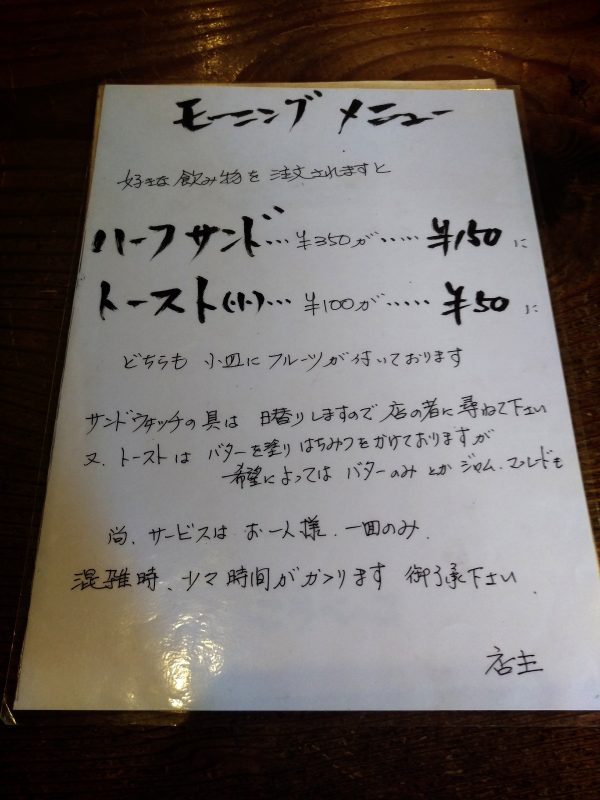 モーニング メニュー
好きな飲み物を注文されますと
ハーフサンド…¥350が……¥150に
トースト(小)…¥100が……¥50に
どちらも 小皿にフルーツが付いております
サンドウィッチの具は 日替りしますので 店の者に尋ねて下さい
又、トーストは バターを塗り はちみつをかけておりますが
希望によっては バターのみ とか ジャム、マーマレードも
尚、サービスは お一人様、一回のみ、
混雑時、少々時間がかゝります 御了承下さい、
店主